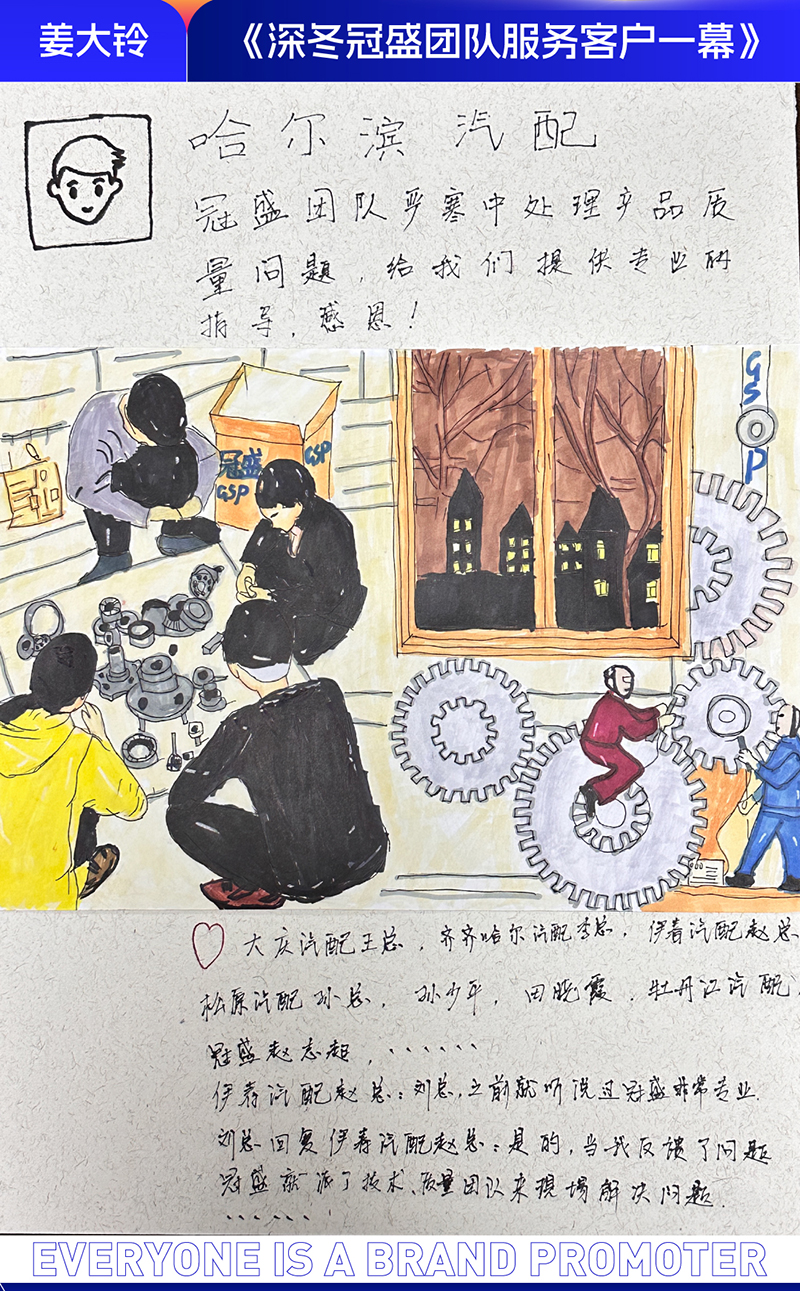 姜大铃
《深冬冠盛团队服务客户一幕》
哈尔滨汽配
冠盛团队严寒中处理产品质
量问题，给我们提供专业的
指导，感恩！
冠盛
GSP
GSP
GSP
大庆汽配王总，齐齐哈尔汽配李总，伊春汽配赵总
松原汽配孙总，孙少平，田晓霞，牡丹江汽配
冠盛赵志超，、、、、、、
伊春汽配赵总：刘总，之前就听说过冠盛非常专业.
刘总回复伊春汽配赵总：是的，当我反馈了问题
冠盛就派了技术、质量团队来现场解决问题.
、、、、、、
EVERYONE IS A BRAND PROMOTER